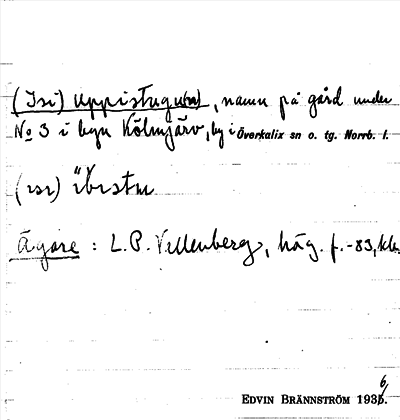 (Isi) Uppistugu(n), namn på gård under
No 3 i byn Kölmjärv, by i Överkalix sn o. tg. Norrb. l.
(isi)
Ägare : L.P. Villenberg, häg. f. -83,
EDVIN BRÄNNSTRÖM 1936.